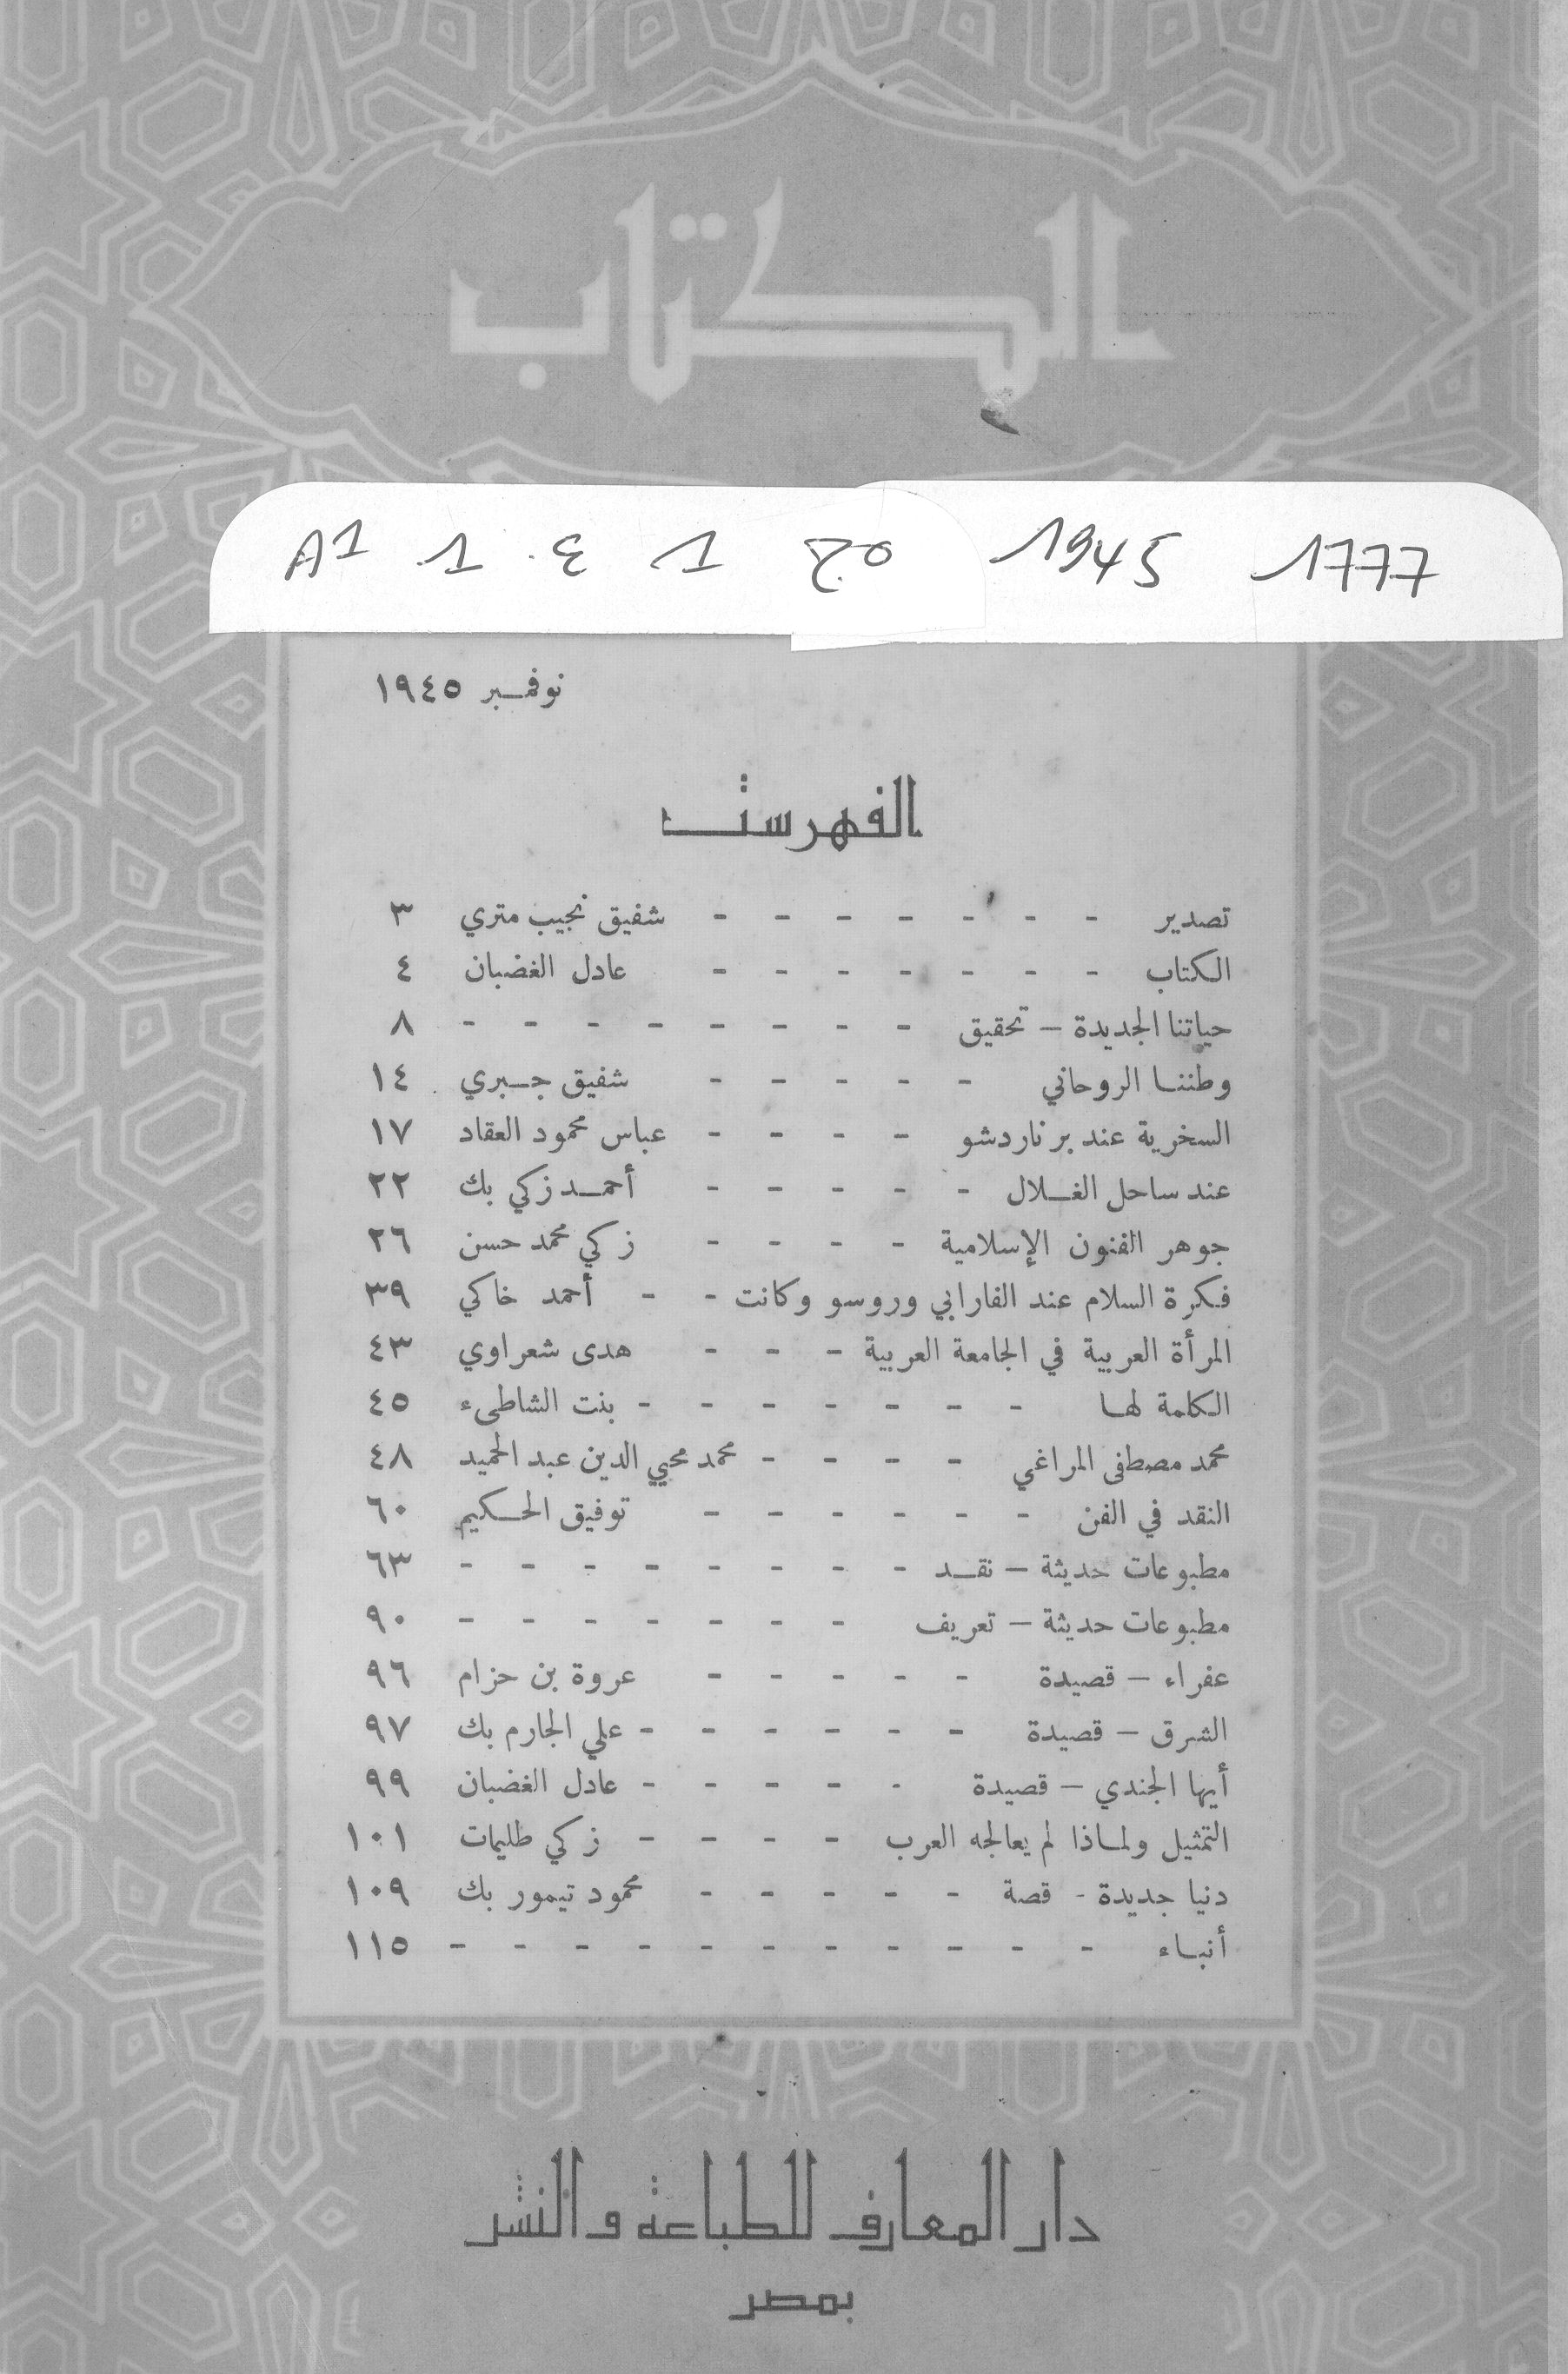 الكتاب
1777 1945 ج٥ 1 ع. 1 A1
نوفمبر ١٩٤٥
الفهرست
تصدير - - - - - - - شفيق نجيب متري ٣
الكتاب - - - - - - - عادل الغضبان ٤
حياتنا الجديدة – تحقيق - - - - - - - - ٨
وطننا الروحاني - - - - - شفيق جبري ١٤
السخرية عند برناردشو - - - - عباس محمود العقاد ١٧
عند ساحل الغلال - - - - - أحمد زكي بك ٢٢
جوهر الفنون الإسلامية - - - - زكي محمد حسن ٢٦
فكرة السلام عند الفارابي وروسو وكانت - - أحمد خاكي ٣٩
المرأة العربية في الجامعة العربية - - - هدى شعراوي ٤٣
الكلمة لها - - - - - - - بنت الشاطىء ٤٥
محمد مصطفى المراغي - - - - محمد محيي الدين عبد الحميد ٤٨
النقد في الفن - - - - - - توفيق الحكيم ٦٠
مطبوعات حديثة – نقد - - - - - - - - ٦٣
مطبوعات حديثة – تعريف - - - - - - - ٩٠
عفراء – قصيدة - - - - - عروة بن حزام ٩٦
الشرق – قصيدة - - - - - - علي الجارم بك ٩٧
أيها الجندي – قصيدة - - - - - عادل الغضبان ٩٩
التمثيل ولماذا لم يعالجه العرب - - - - زكي طليمات ١٠١
دنيا جديدة - قصة - - - - - محمود تيمور بك ١٠٩
أنباء - - - - - - - - - - - ١١٥
دار المعارف للطباعة والنشر
بمصر